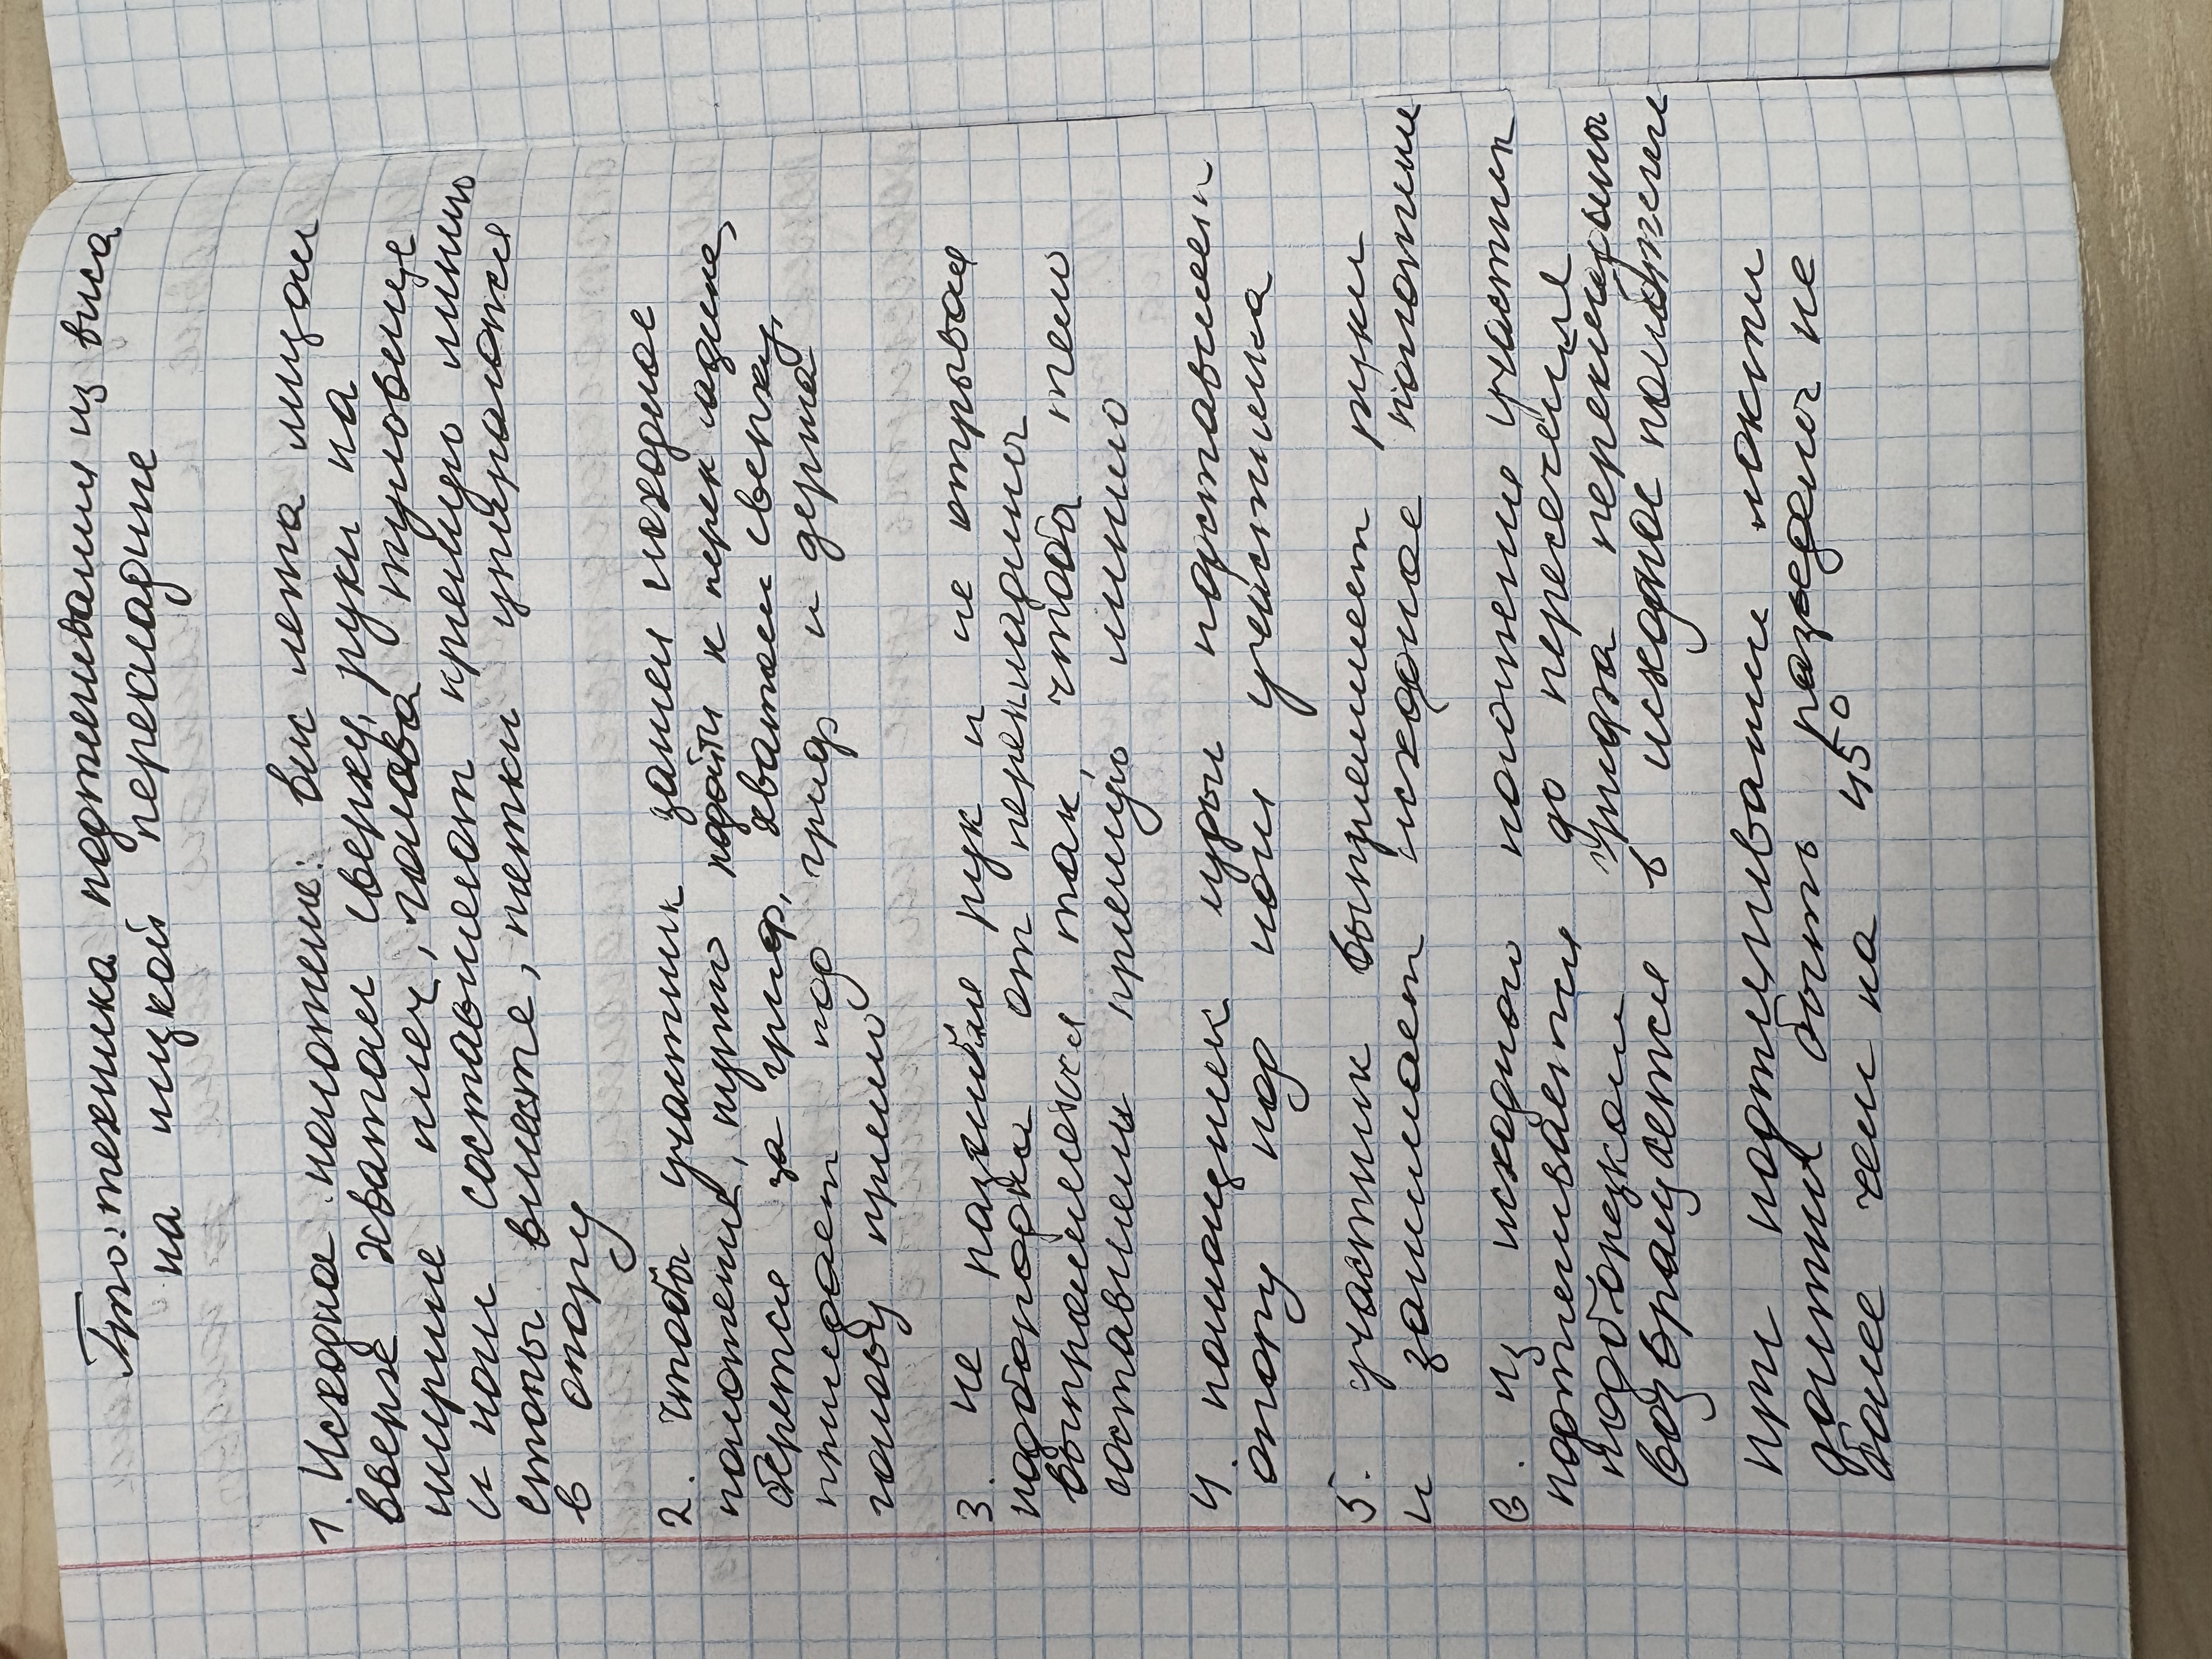 Гто: техника подтягивания из виса
на низкой перекладине
1. Исходное положение: Вис лёжа лицом
вверх хватом сверху, руки на
ширине плеч, голова туловище
и ноги составляют прямую линию
стопы вместе, пятки упираются
в опору
2. чтобы участник занял исходное
положение, нужно подойти к перекладине,
берётся за гриф, хватом сверху,
приседает под гриф и держа
голову прямо
3. не разгибая рук и не отрывая
подбородка от перекладины
выпрямляясь так, чтобы тело
оставляли прямую линию
4. помощник подставляет
опору под ноги участника
5. участник выпрямляет руки
и занимает исходное положение
6. из исходного положения участник
подтягивается до пересечения
подбородком грифа перекладины
возвращается в исходное положение
при подтягивании локти
должны быть разведены не
более чем на 45°